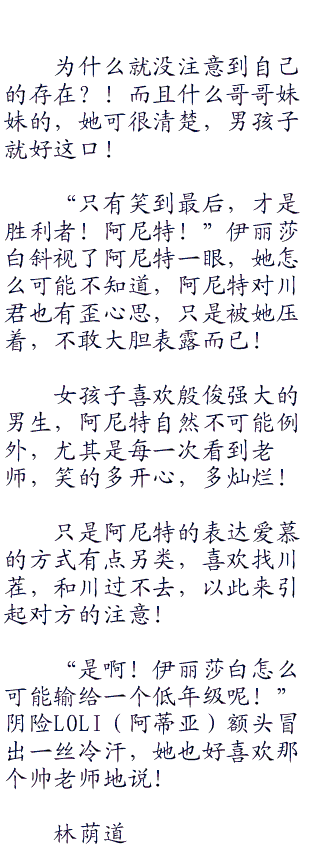 为什么就没注意到自己
的存在？！而且什么哥哥妹
妹的，她可很清楚，男孩子
就好这口！
“只有笑到最后，才是
胜利者！阿尼特！”伊丽莎
白斜视了阿尼特一眼，她怎
么可能不知道，阿尼特对川
君也有歪心思，只是被她压
着，不敢大胆表露而已！
女孩子喜欢殷俊强大的
男生，阿尼特自然不可能例
外，尤其是每一次看到老
师，笑的多开心，多灿烂！
只是阿尼特的表达爱慕
的方式有点另类，喜欢找川
茬，和川过不去，以此来引
起对方的注意！
“是啊！伊丽莎白怎么
可能输给一个低年级呢！”
阴险LOLI（阿蒂亚）额头冒
出一丝冷汗，她也好喜欢那
个帅老师地说！
林荫道